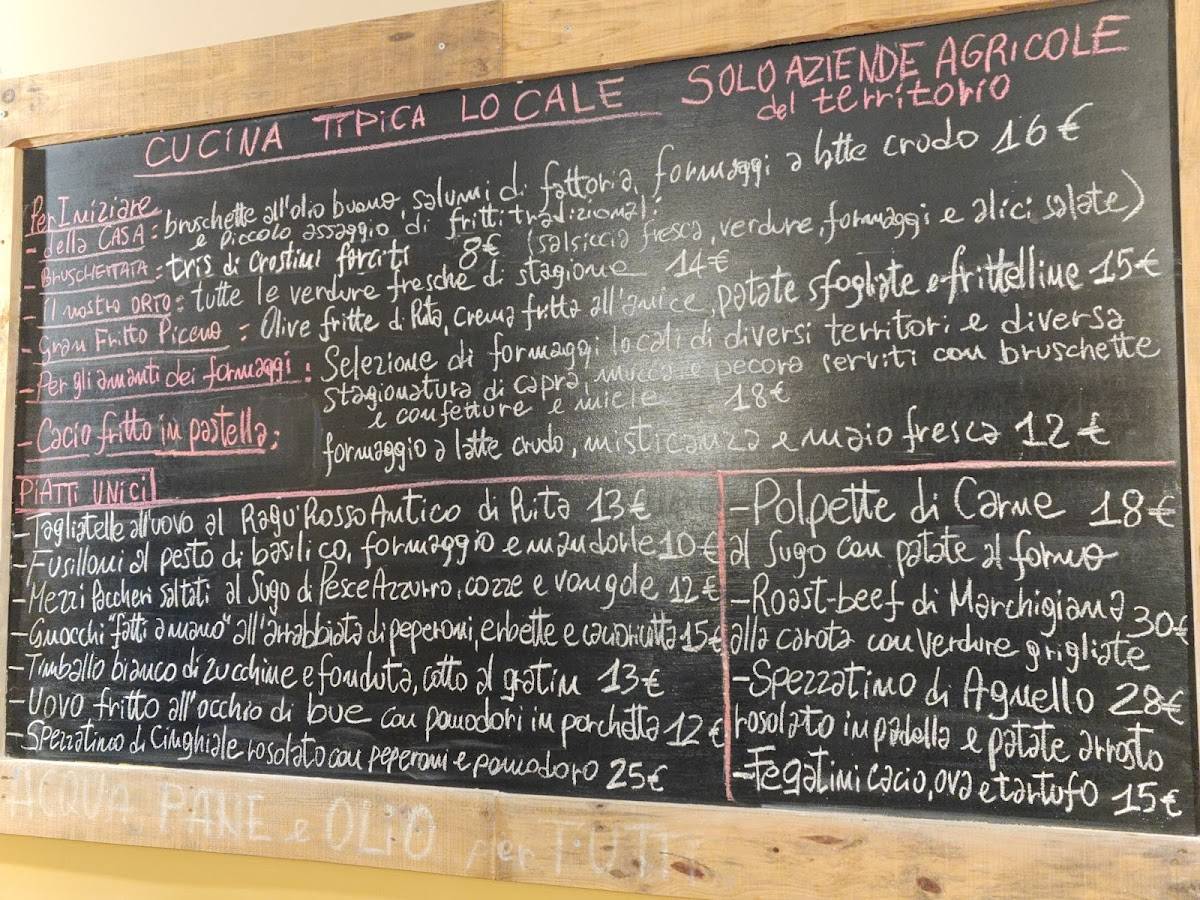 CUCINA TIPICA LOCALE SOLO AZIENDE AGRICOLE
del territorio
Per Iniziare
- della CASA: bruschette all'olio buono, salumi di fattoria, formaggi a latte crudo 16€
e piccolo assaggio di fritti tradizionali: (salsiccia fresca, verdure, formaggi e alici salate)
- BRUSCHETTATA: tris di crostini farciti 8€
- il nostro ORTO: tutte le verdure fresche di stagione 14€
- Gran Fritto Piceno: Olive fritte di Rita, crema fritta all'anice, patate sfogliate e frittelline 15€
- Per gli amanti dei formaggi: Selezione di formaggi locali di diversi territori e diversa
stagionatura di capra, mucca e pecora serviti con bruschette
e confetture e miele 18€
- Cacio fritto in pastella: formaggio a latte crudo, misticanza e maio fresca 12€
PIATTI UNICI
- Tagliatelle all'uovo al Ragu' Rosso Antico di Rita 13€
- Fusilloni al pesto di basilico, formaggio e mandorle 10€
- Mezzi Paccheri saltati al Sugo di Pesce Azzurro, cozze e vongole 12€
- Gnocchi "fatti a mano" all'arrabbiata di peperoni, erbette e cacioricotta 15€
- Timballo bianco di zucchine e fonduta, cotto al gratin 13€
- Uovo fritto all'occhio di bue con pomodori in porchetta 12€
- Spezzatino di Cinghiale rosolato con peperoni e pomodoro 25€
- Polpette di Carne 18€
al sugo con patate al forno
- Roast-beef di Marchigiana 30€
alla carota con verdure grigliate
- Spezzatino di Agnello 28€
rosolato in padella e patate arrosto
- Fegatini cacio, ova e tartufo 15€
ACQUA PANE e OLIO per TUTTI